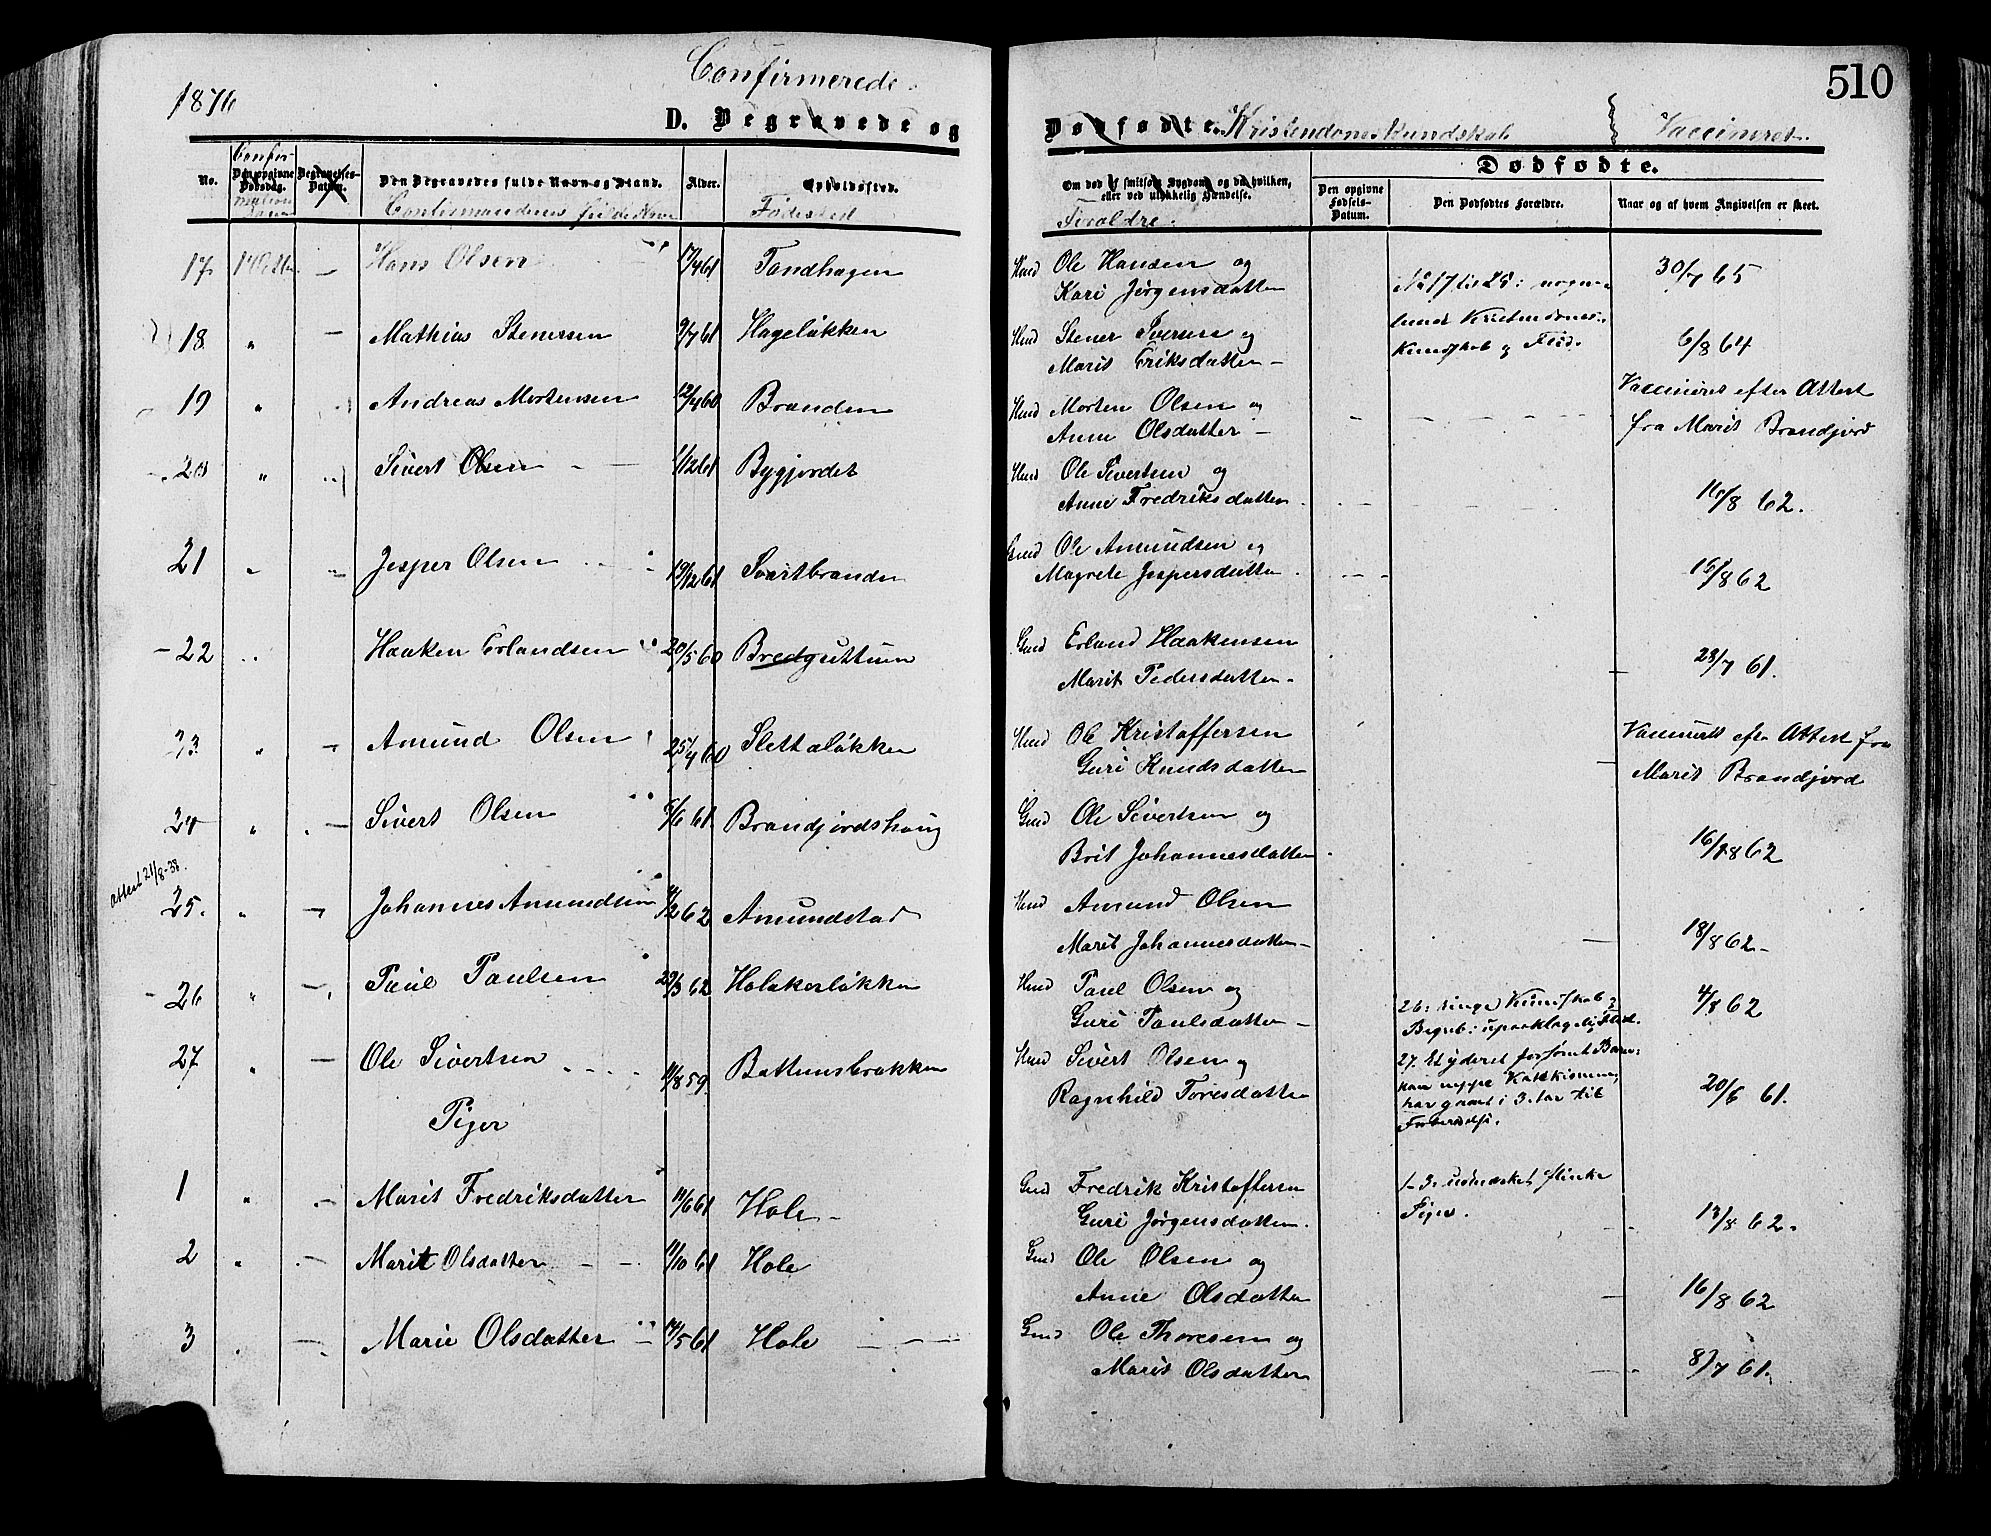 1876
Confirmerede
D. Begravede og
Dødfødte. Kristendomskundskab Vaccineret.
510
No.
Confir-
mations
Den opgivne Dødsdag.
Begravelses-Datum.
Den Begravedes fulde Navn og Stand.
Confirmandens fulde Navn
Alder.
Opholdssted.
Fødested
Om død af smitsom Sygdom og da hvilken, eller ved ulykkelig Hændelse.
Forældre.
Dødfødte.
Den opgivne Fødsels-Datum.
Den Dødfødtes Forældre.
Naar og af hvem Angivelsen er skeet.
17 Hans Olsen 17/4 61 Tandhagen Hmd Ole Hansen og 30/7 65
Kari Jørgensdatter
No 17 til 25:
Kristendoms-
Kundskab og Flid.
18 " Mathias Stenersen 9/7 61 Hageløkken Hmd Stener Iversen og 6/8 64
Marit Eriksdatter
19 " Andreas Mortensen 12/4 60 Branden Hmd Morten Olsen og Vaccineret efter Attest
Anne Olsdatter fra Marit Brandjord
20 " Sivert Olsen 1/12 61 Bygjordet Hmd Ole Sivertsen og 16/8 62.
Anne Fredriksdatter
21 " Jesper Olsen 19/12 61 Svartbranden Gmd Ole Amundsen og 15/8 62
Magrete Jespersdatter
22 " Haaken Erlandsen 20/5 60 Bredguttuen Gmd Erland Haakensen 28/7 61.
Marit Pedersdatter
23 " Amund Olsen 25/4 60 Slettaløkken Hmd Ole Kristoffersen Vaccineret efter Attest fra
Guri Knudsdatter Marit Brandjord
24 " Sivert Olsen 5/6 61 Brandjordshaug Gmd Ole Sivertsen og 16/8 62
Brit Johannesdatter
Attest 21/8-38.
25. " Johannes Amundsen 4/2 62 Amundstad Hmd Amund Olsen 18/8 62
Marit Johannesdatter
26 " Paul Paulsen 29/3 62 Holakerløkken Hmd Paul Olsen og 4/8 62
Guri Paulsdatter
26: ringe Kundskab og
Begreb: upaaklagelig Flid.
27 " Ole Sivertsen 11/8 59 Battumsbrækken Hmd Sivert Olsen og 20/6 61.
Ragnhild Toresdatter
27. Et yderst forsømt Barn:
kan neppe Katekismen,
har gaaet i 3. Aar til
Forberedelse.
Piger
1 " Marit Fredriksdatter 11/6 61 Hole Gmd Fredrik Kristoffersen 13/8 62.
Guri Jørgensdatter
1-3: udmærket flinke
Piger.
2 " Marit Olsdatter 11/10 61 Hole Gmd Ole Olsen og 16/8 62
Anne Olsdatter
3 " Marie Olsdatter 14/5 61 Hole Gmd Ole Thoresen og 8/7 61.
Marit Olsdatter